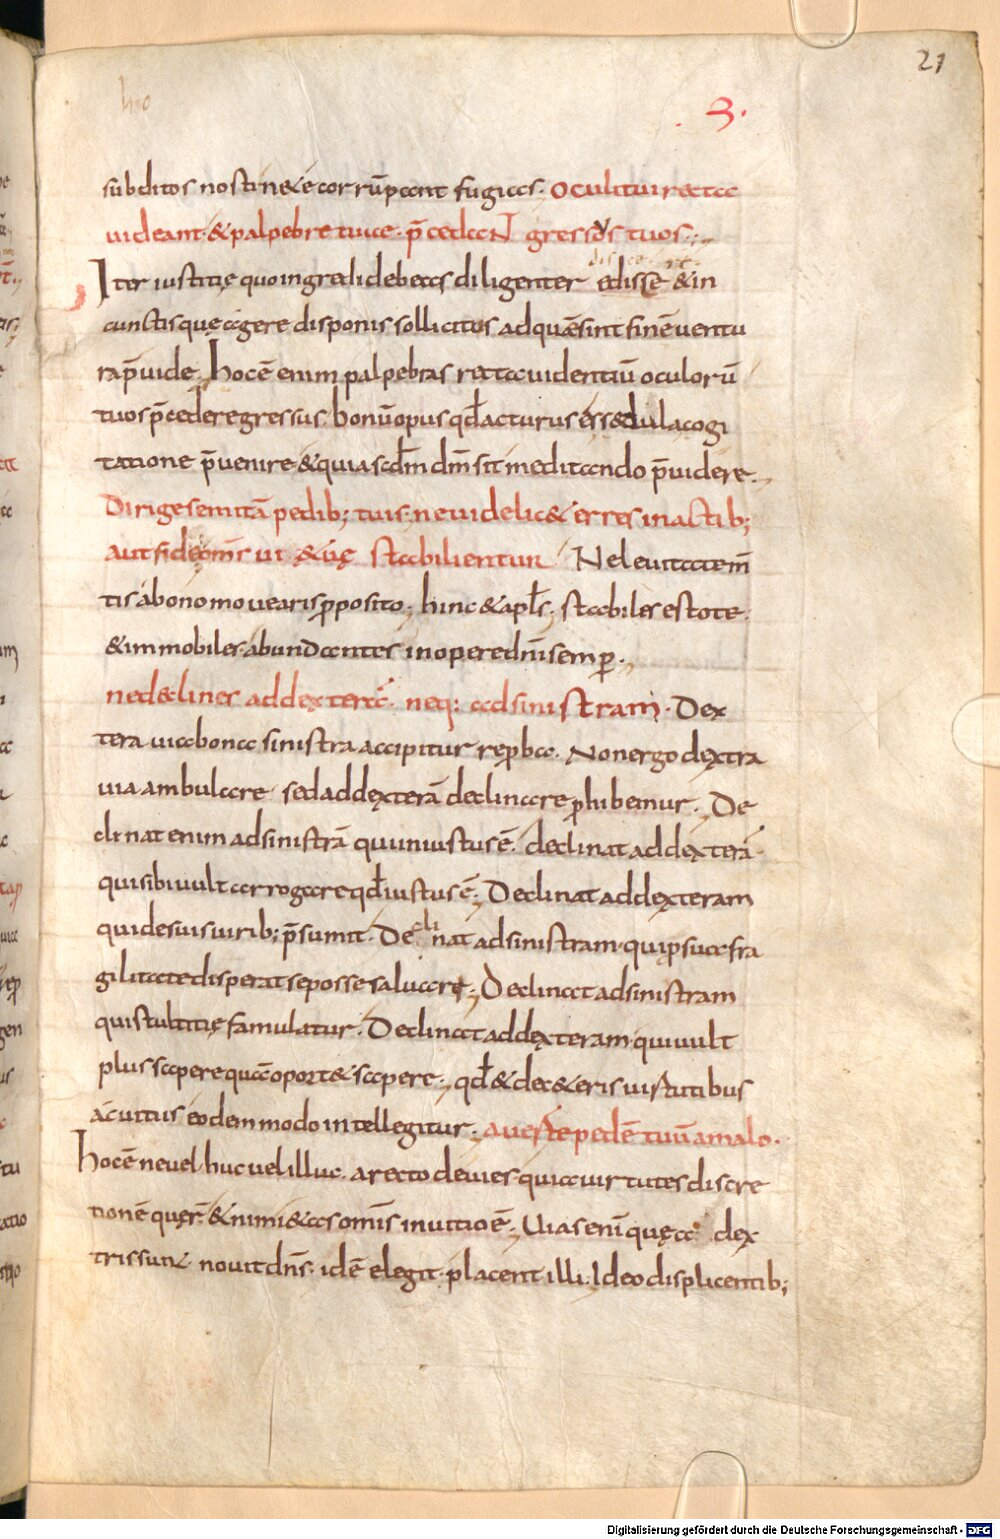 21
3.
subditos nosti ne & e corrūpant fugias. Oculi tui recta
uideant & palpebre tuae p̄cedaN gressus tuos.
Iter iustitię quo ingredi debeas diligenter edisse & in
cunctis quę agere disponis sollicitus ad quā sint finē uentu
ra p̄uide. hoc ē enim palpebras recta uidentiū oculorū
tuos p̄cedere gressus. bonū opus qđ acturus es sedula cogi
tatione p̄uenire & quia scđm dm̄ sit meditando p̄uidere.
Dirige semitā pedib; tuis. ne uidelic& erres in actib;
aut fide omīs ui & uę stabilientur Ne leuitate m̄
tis á bono mouearis p̱posito. hinc & apl̄s. stabiles estote.
& immobiles. abundantes in opere dn̄i semp̱.
ne declines ad dexterā. neq; ad sinistram. Dex
tera uia bona sinistra accipitur rep̱ba. Non ergo dextra
uia ambulare sed ad dexterā declinare p̱hibemur. De
clinat enim ad sinistrā qui iniustus ē. declinat ad dexterā.
qui sibi uult arrogare qđ iustus ē. Declinat ad dexteram
qui de suis uirib; p̄sumit. Declinat ad sinistram. qui p̱ sua fra
gilitate disperat se posse saluare. Declinat ad sinistram
qui stultitię famulatur. Declinat ad dexteram qui uult
plus sapere quā oport& sapere. qđ & de ca&eris uirtutibus
ac uitiis eodem modo intellegitur. auerte pedē tuū a malo.
hoc ē ne uel huc uel illuc a recto deuies. quia uirtutes discre
tionē quęr̄. & nimi&as om̄is in uitio ē. Uias enī quę a dex
tris sunt nouit dn̄s. idē elegit. placent illi. Ideo displicentib;
Digitalisierung gefördert durch die Deutsche Forschungsgemeinschaft - DFG